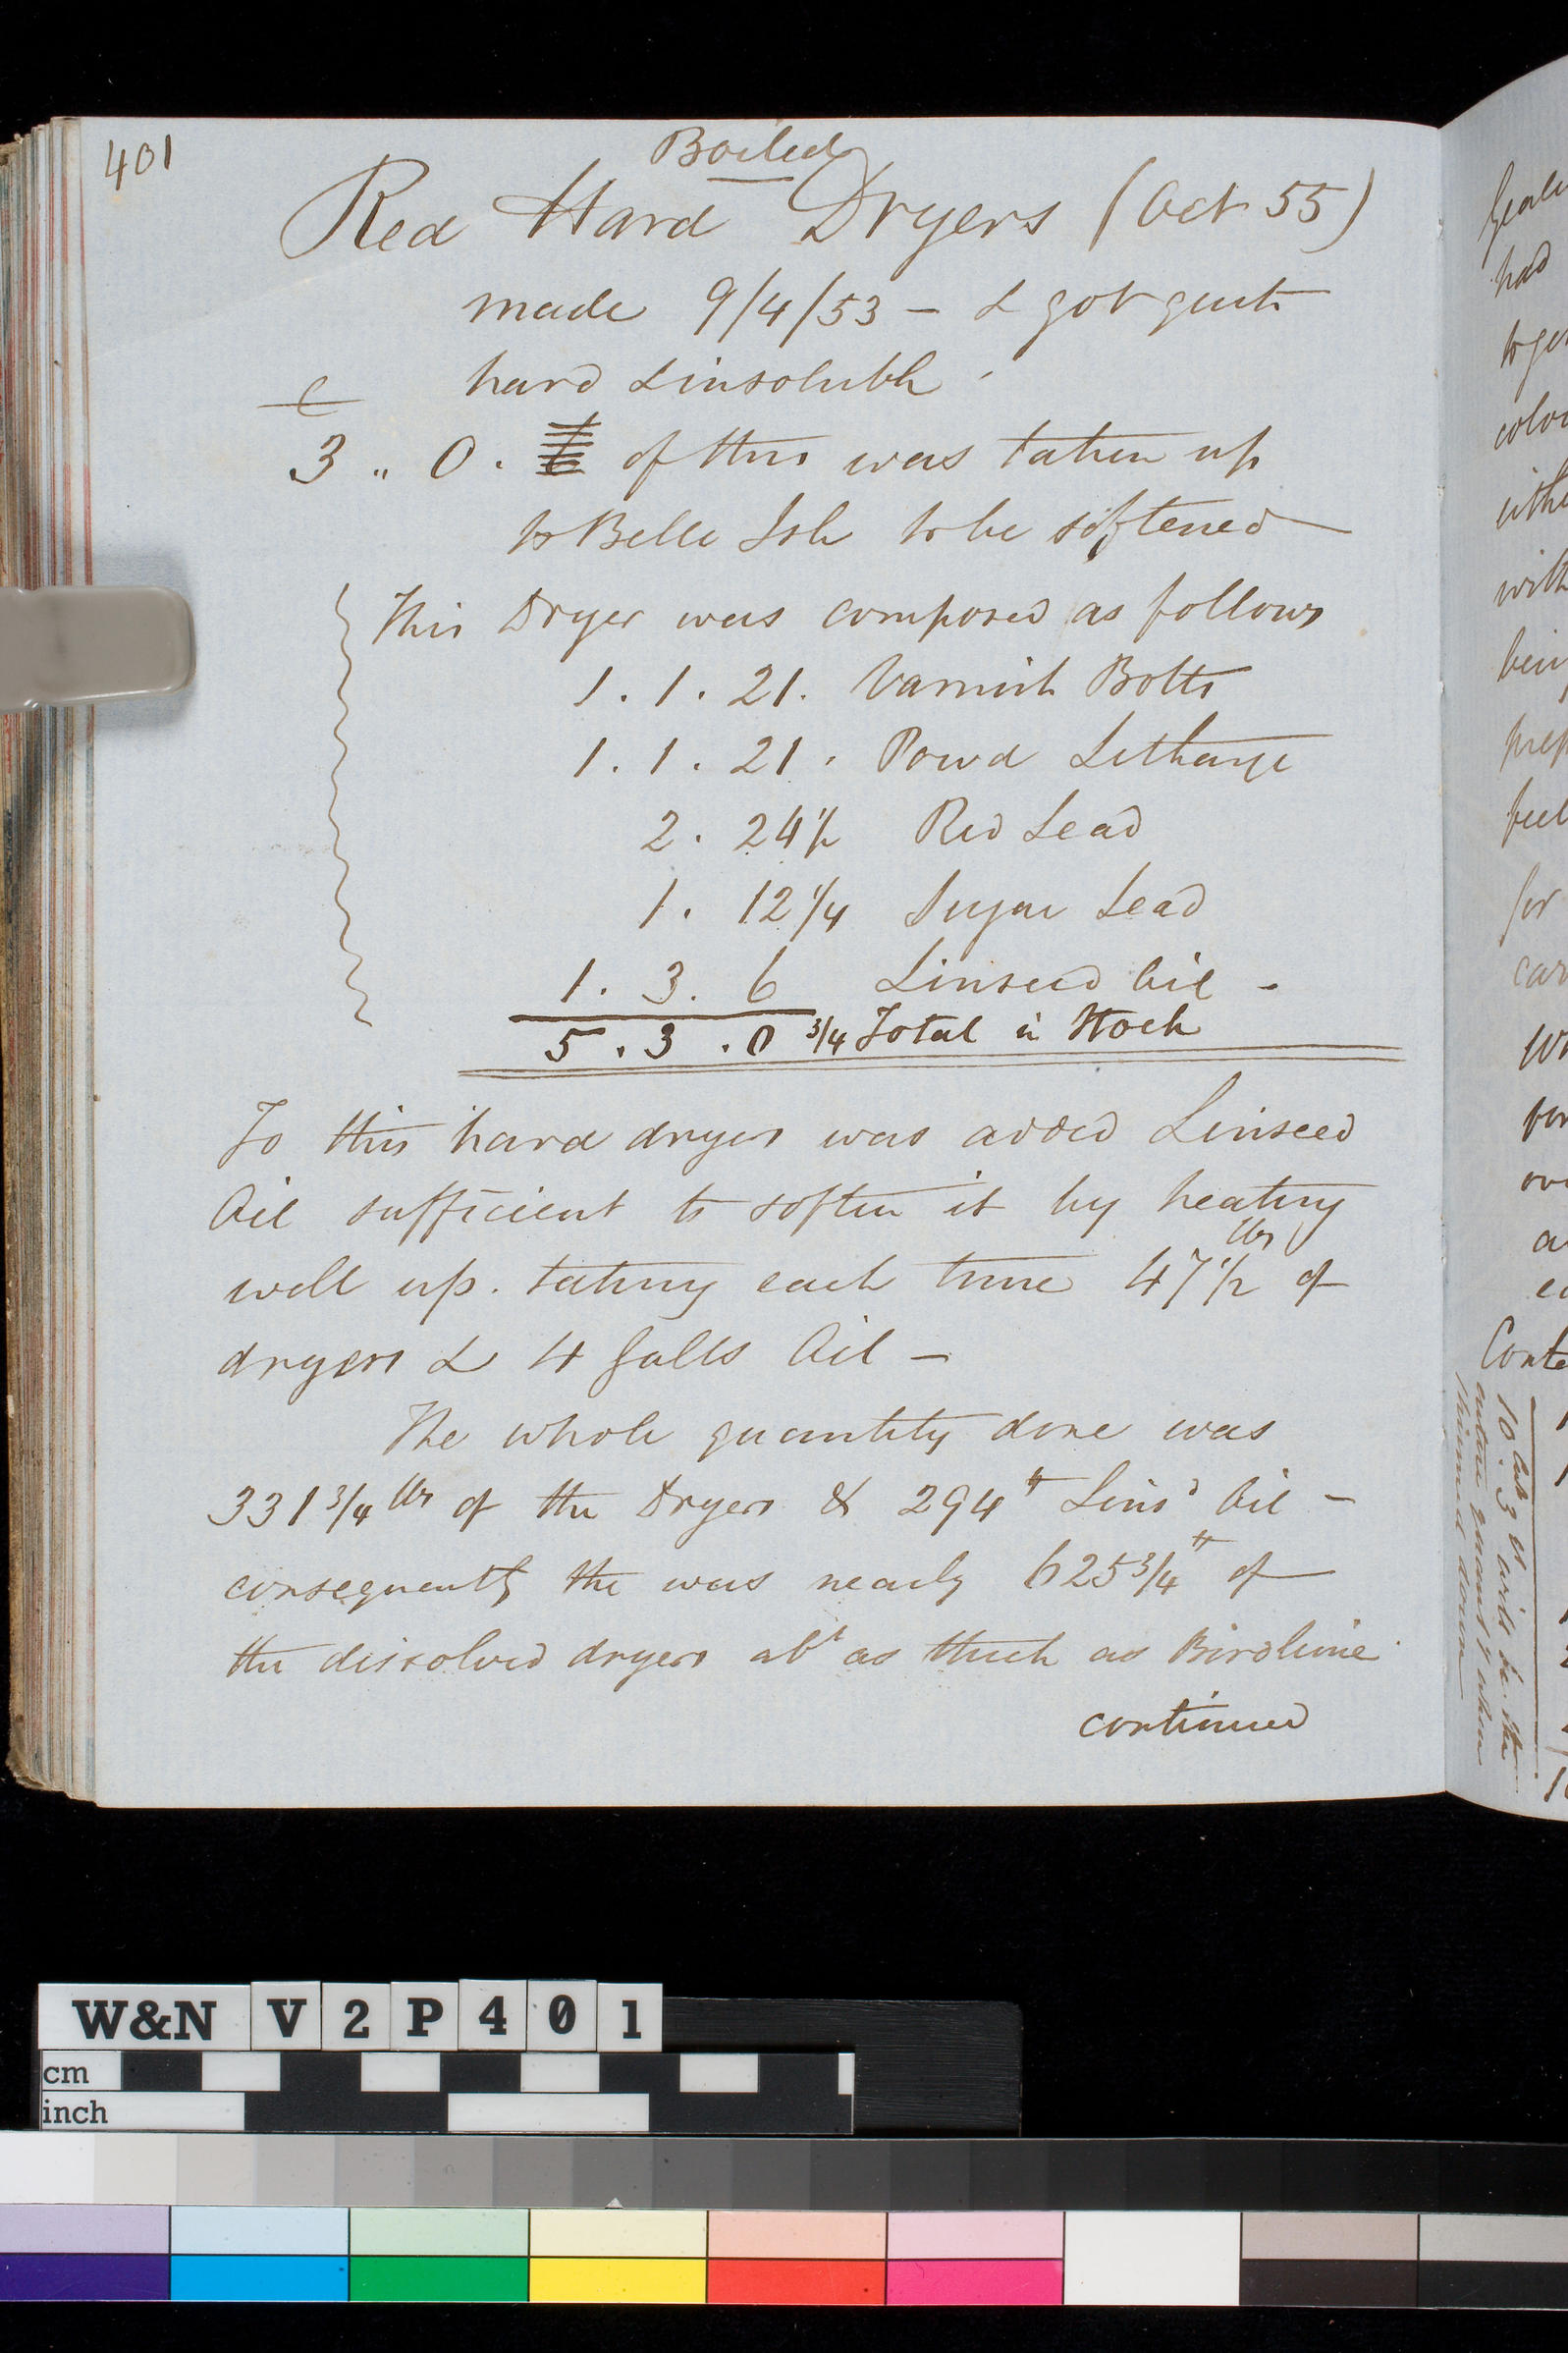 401
Boiled
Red Hard Dryers (Oct 55)
made 9/4/53 - & got quite
hard & insoluble.
c
3 " 0 . of this was taken up
to Belle Isle to be softened
This Dryer was composed as follows
1 . 1 . 21 . Varnish Botts
1 . 1 . 21 . Powd Litharge
2 . 24 1/2 Red Lead
1 . 12 1/4 Sugar Lead
1 . 3 . 6 Linseed Oil -
5 . 3 . 0 3/4 Total in Stock
To this hard dryers was added Linseed
Oil sufficient to soften it by heating
well up. taking each time 47 1/2 lbs of
dryers & 4 Galls Oil -
The whole quantity done was
331 3/4 lbs of the Dryers & 294 lb Lins'd Oil -
consequently the was nearly 625 3/4 lb of
the dissolved dryers abt as thick as Birdlime.
continued
had
with
for
Conte
W&N V 2 P 4 0 1
cm
inch